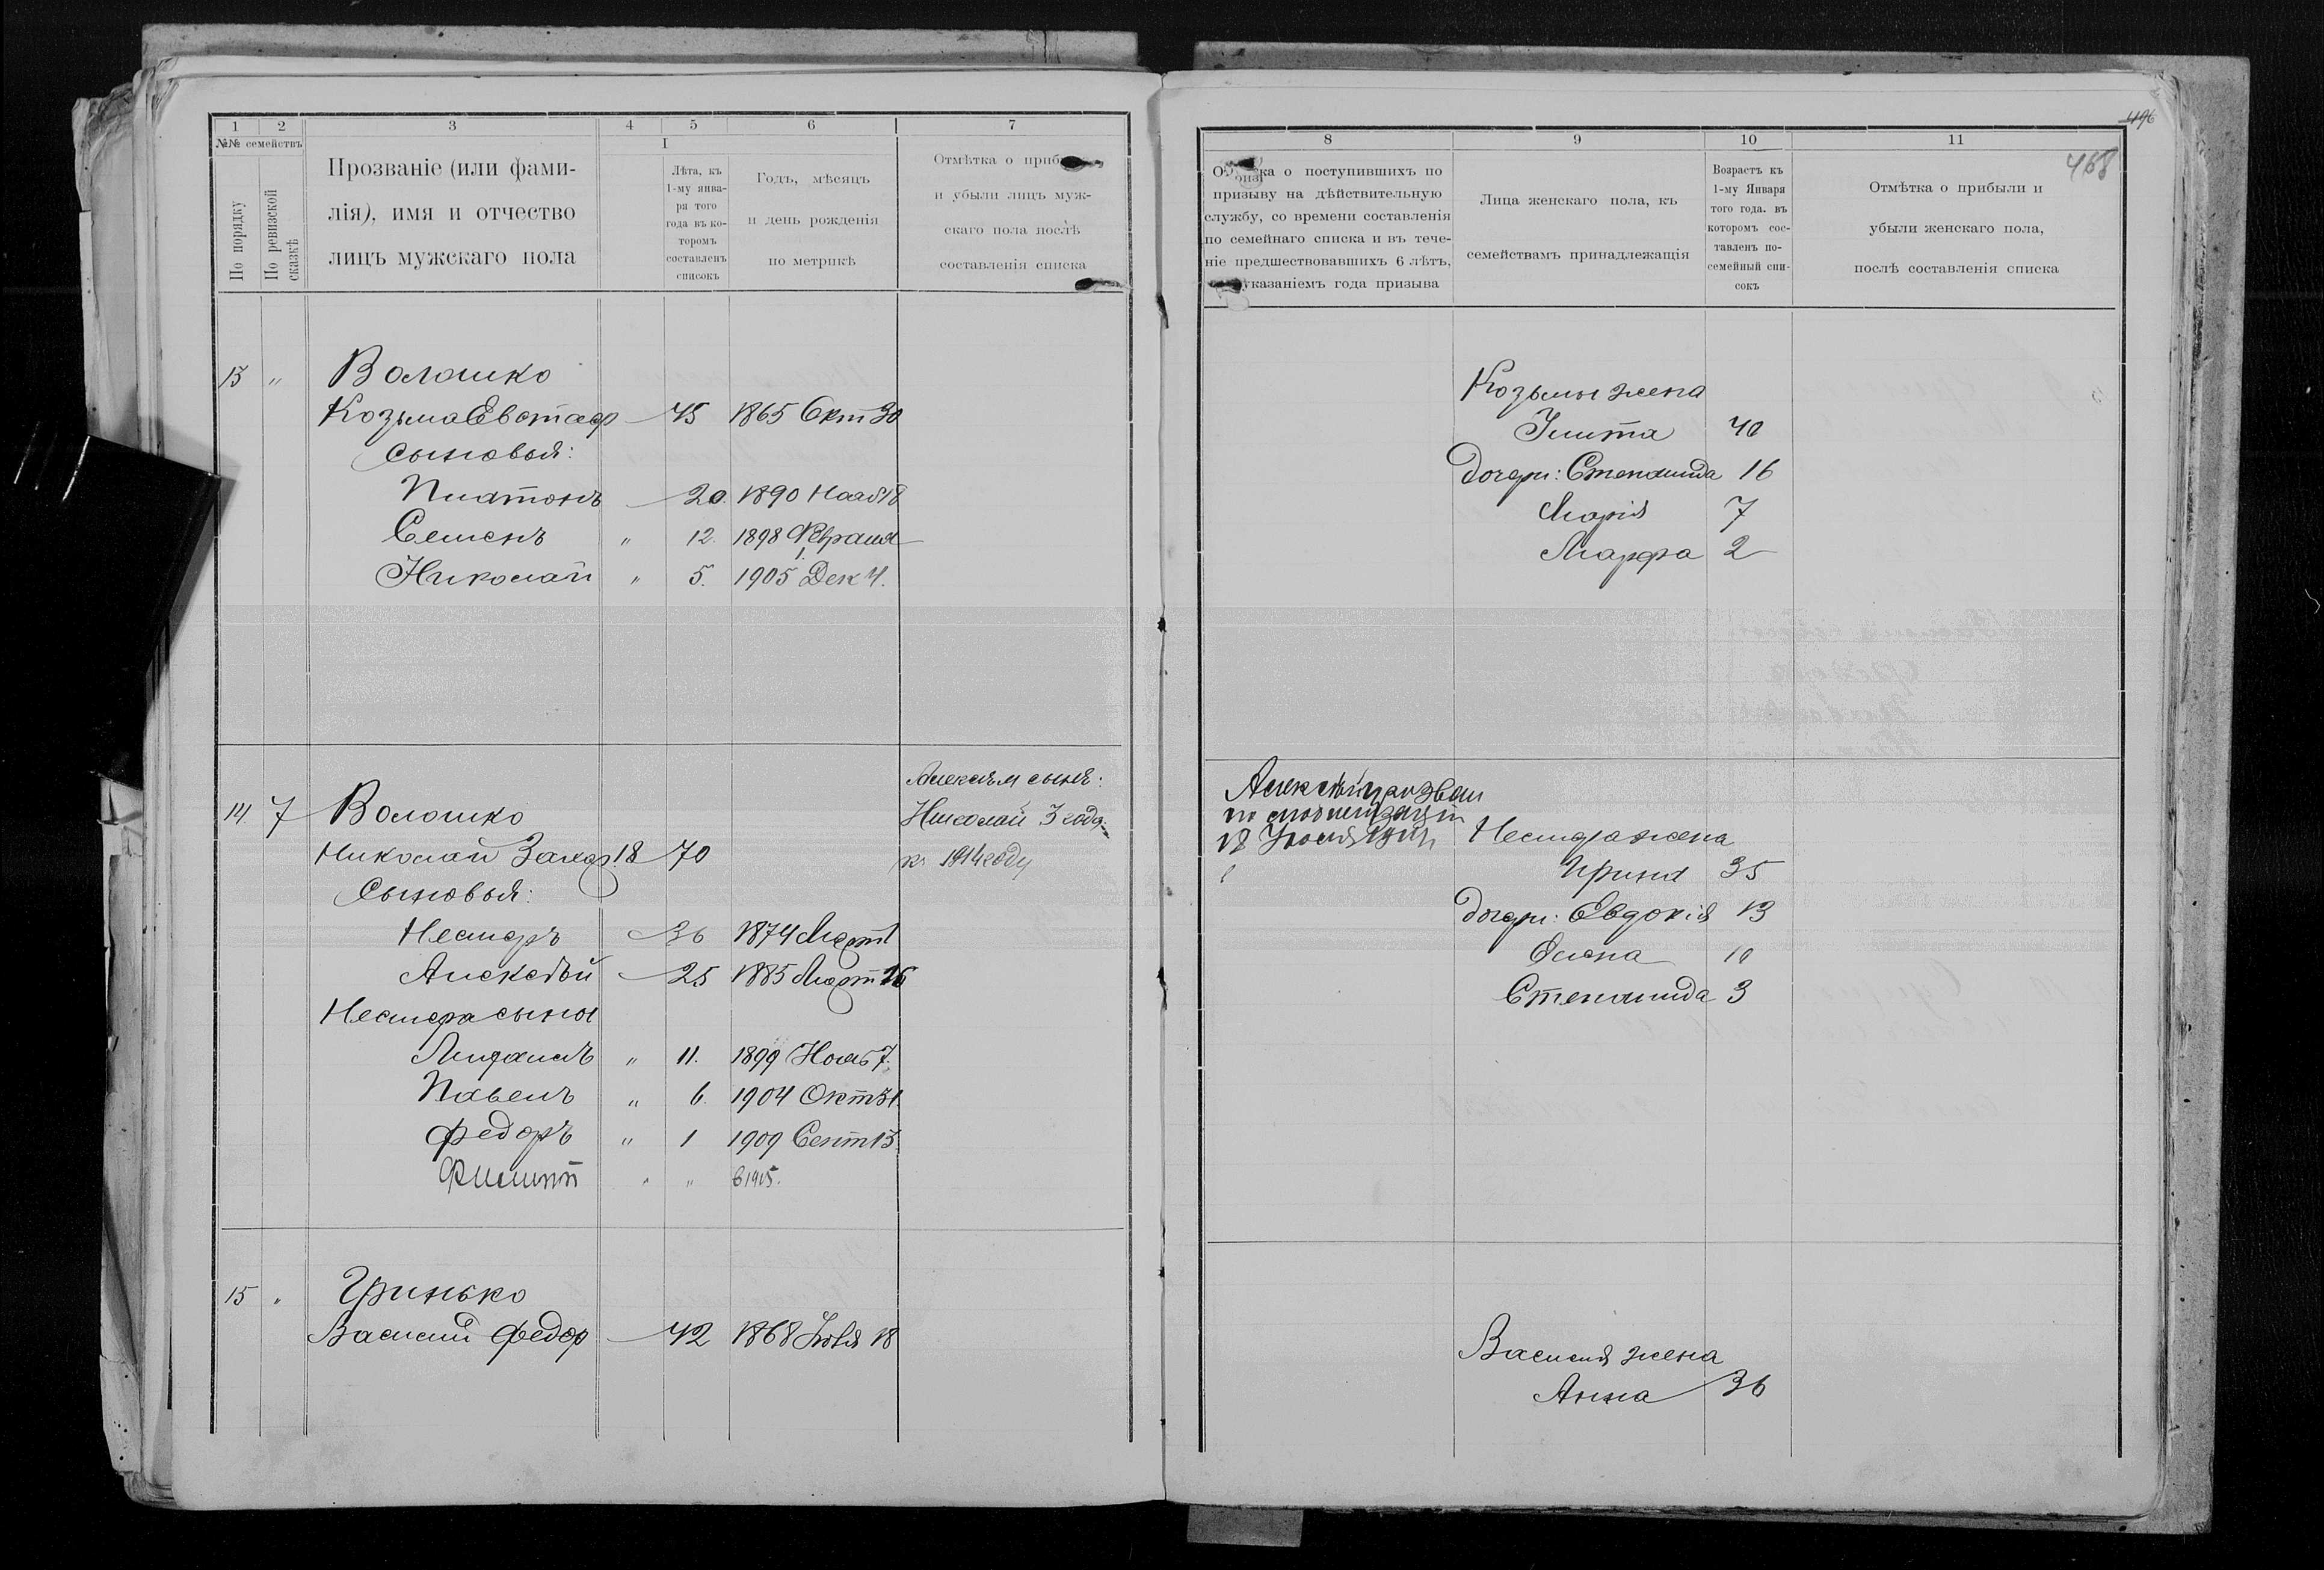 1 2 3 4 5 6 7
№№ семействъ
По порядку
По ревизской сказкѣ
Прозваніе (или фами-
лія), имя и отчество
лицъ мужскаго пола
I
Лѣта, къ
1-му янва-
ря того
года въ ко-
торомъ
составленъ
списокъ
Годъ, мѣсяцъ
и день рожденія
по метрикѣ
Отмѣтка о
и убыли лицъ муж-
скаго пола послѣ
составленія списка
13 " Волошко
Козьма Евстаф 45 1865 Окт 30
Сыновья:
Платонъ 20. 1890 Нояб 18
Семенъ " 12. 1898 Февраля
1
Николай " 5. 1905 Дек 4.
Алексѣя сынъ:
14 7 Волошко Николай 3 года
Николай Захар. 18 70 къ 1914 году
Сыновья:
Несторъ 36 1874 Март 1
Алексѣй 25 1885 Март 16
Нестора сыны
" 11. 1899 Нояб 7.
Павелъ " 6. 1904 Окт 31.
Федоръ " 1 1909 Сент 13.
Филиппъ " " 1915.
15 " Гринько
Василій Федор 42 1868 18
496
8 9 10 11
468
о поступившихъ по
призыву на дѣйствительную
службу, со времени составленія
по семейнаго списка и въ тече-
ніе предшествовавшихъ 6 лѣтъ,
указаніемъ года призыва
Лица женскаго пола, къ
семействамъ принадлежащія
Возрастъ къ
1-му Января
того года, въ
которомъ сос-
тавленъ по-
семейный спи-
сокъ
Отмѣтка о прибыли и
убыли женскаго пола,
послѣ составленія списка
Козьмы жена
40
дочери: Степанида 16
Марія 7
Марфа 2
Алексѣй призван
по мобилизаціи
18 Нестора жена
Ирина 35
дочери: Евдокія 13
Елена 10
Степанида 3
Василія жена
Анна 36